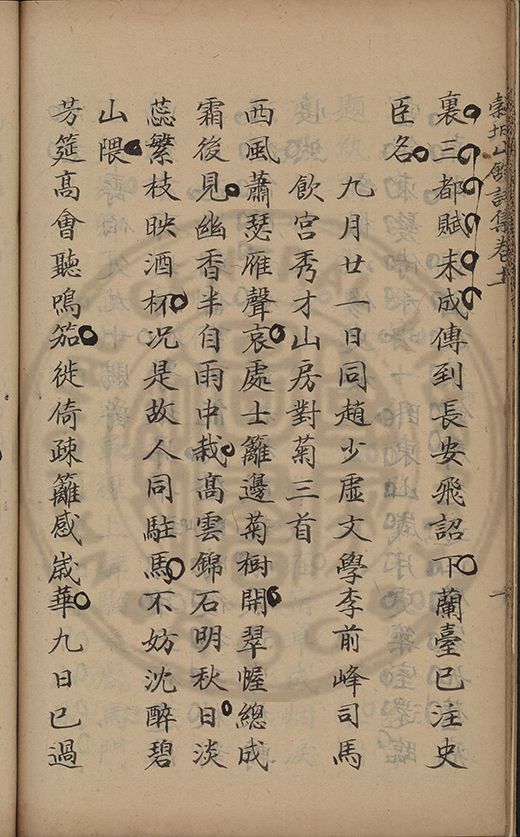 山人詩集卷十
裏三都賦未成傳到長安飛詔下蘭臺已注史
臣名
九月廿一日同趙少虛文學李前峰司馬
飲宮秀才山房對菊三首
西風蕭瑟雁聲哀處士籬邊菊樹開翠幄總成
霜後見幽香半自雨中栽高雲錦石明秋日淡
蕊繁枝映酒杯况是故人同駐馬不妨沈醉碧
山隈
芳筵高會聽鳴笳徙倚疎籬感嵗華九日已過